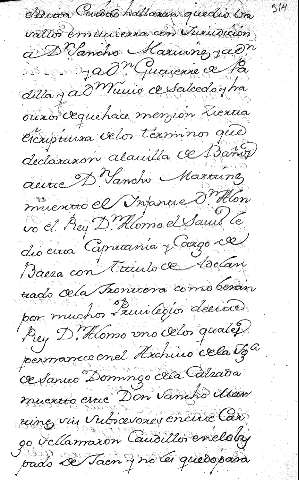 914
vallos en su tierra con Jurisdicion
a Dn Sancho Martinez y a Dn
y a Dn Gutierre de Pa
dilla y a Dn Nuño de Salcedo y ha
ouros de que hace menzion zierta
escriptura de los terminos que
declararon a la villa de Baños
a este Dn Sancho Martinez
muerto el Infante Dn Alon
so el Rey Dn Alonso el Savio le
dio esta Capitania y Cargo de
Baeza con titulo de Adelan
tado de la Frontera como beran
por muchos Privilegios de este
Rey Dn Alonso uno de los quales
permanece en el Archivo de la Ygla
de Santo Domingo de la Calzada
muerto este Don Sancho Mar
tinez sus subcesores en este Car
go se llamaron Caudillos en el obis
pado de Jaen y no les quedo para